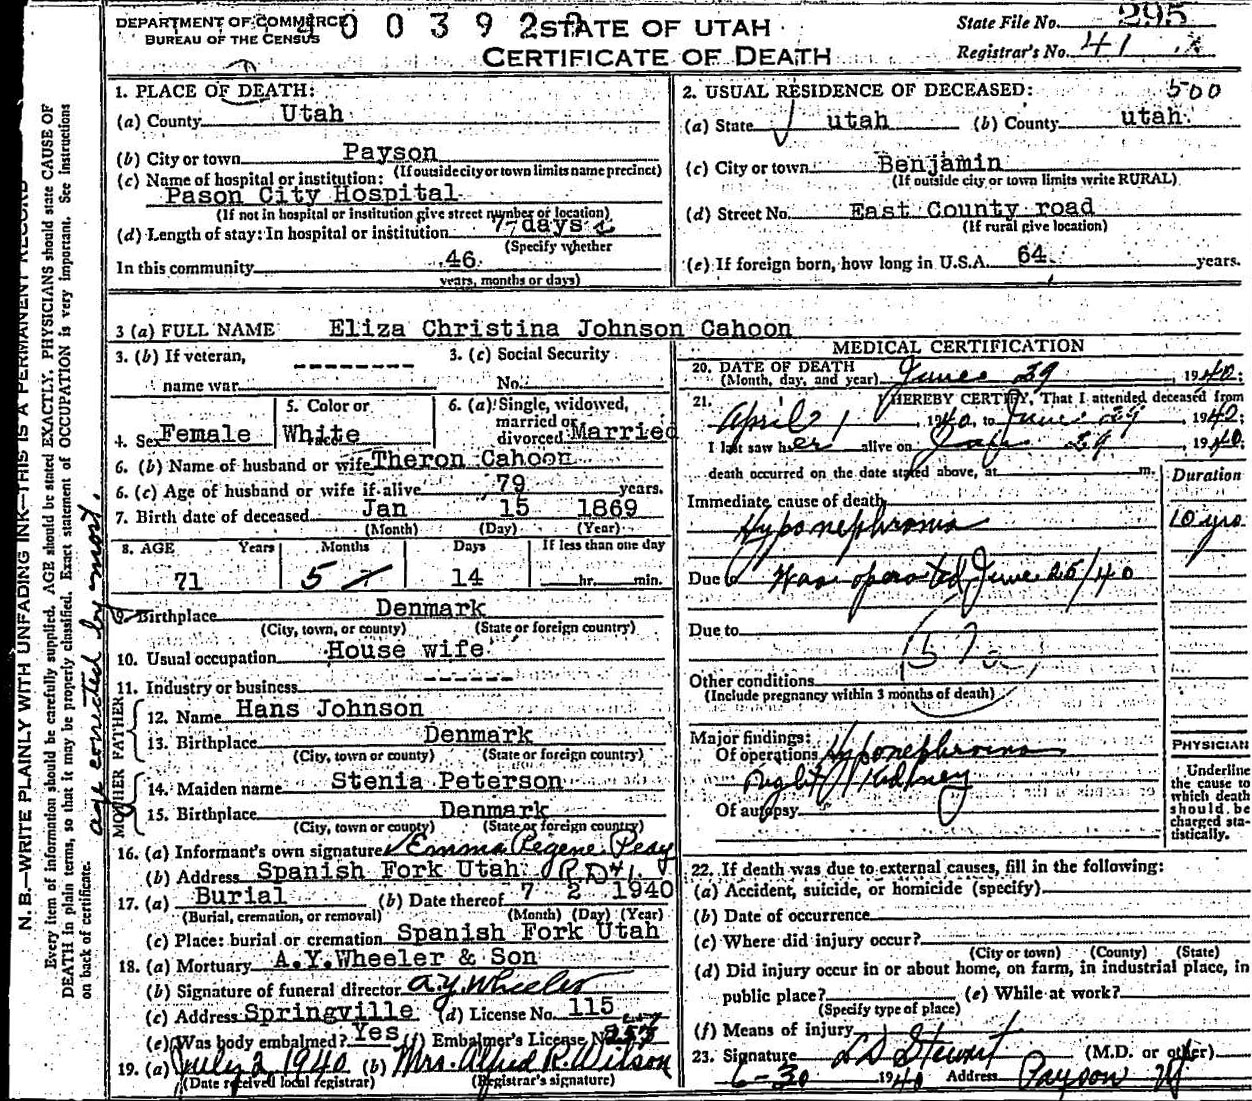 DEPARTMENT OF COMMERCE
BUREAU OF THE CENSUS
STATE OF UTAH
CERTIFICATE OF DEATH
State File No. 295
Registrar's No. 41
1. PLACE OF DEATH:
(a) County Utah
(b) City or town Payson
(If outside city or town limits name precinct)
(c) Name of hospital or institution:
Pason City Hospital
(If not in hospital or institution give street number or location)
(d) Length of stay: In hospital or institution 7 days
(Specify whether
In this community 46
years, months or days)
2. USUAL RESIDENCE OF DECEASED: 500
(a) State utah (b) County utah
(c) City or town Benjamin
(If outside city or town limits write RURAL)
(d) Street No. East County road
(If rural give location)
(e) If foreign born, how long in U.S.A. 64 years.
3 (a) FULL NAME Eliza Christina Johnson Cahoon
3. (b) If veteran,
name war
3. (c) Social Security
No.
4. Sex Female
5. Color or
race White
6. (a) Single, widowed,
married or
divorced Married
6. (b) Name of husband or wife Theron Cahoon
6. (c) Age of husband or wife if alive 79 years.
7. Birth date of deceased Jan 15 1869
(Month) (Day) (Year)
8. AGE Years Months Days If less than one day
71 5 14 hr. min.
9. Birthplace Denmark
(City, town, or county) (State or foreign country)
10. Usual occupation House wife
11. Industry or business
FATHER
12. Name Hans Johnson
13. Birthplace Denmark
(City, town or county) (State or foreign country)
MOTHER
14. Maiden name Stenia Peterson
15. Birthplace Denmark
(City, town or county) (State or foreign country)
16. (a) Informant's own signature Emma Regene Peay
(b) Address Spanish Fork Utah R.D #1.
17. (a) Burial (b) Date thereof 7 2 1940
(Burial, cremation, or removal) (Month) (Day) (Year)
(c) Place: burial or cremation Spanish Fork Utah
18. (a) Mortuary A.Y.Wheeler & Son
(b) Signature of funeral director A.Y. Wheeler
(c) Address Springville (d) License No. 115
(e) Was body embalmed? Yes (f) Embalmer's License No.
19. (a) July 2, 1940 (b) Mrs. Alfred R. Wilson
(Date received local registrar) (Registrar's signature)
MEDICAL CERTIFICATION
20. DATE OF DEATH
(Month, day, and year) June 29, 1940;
21. I HEREBY CERTIFY, That I attended deceased from
April 21, 1940, to June 29 1940;
I last saw her alive on 29 1940;
death occurred on the date stated above, at m.
Duration
Immediate cause of death
Hyponephroma 10 yrs
Due to Was operated June 25/40
Due to
57a
Other conditions
(Include pregnancy within 3 months of death)
Major findings:
Of operations Hyponephroma
right Kidney
Of autopsy
PHYSICIAN
Underline
the cause to
which death
should be
charged sta-
tistically.
22. If death was due to external causes, fill in the following:
(a) Accident, suicide, or homicide (specify)
(b) Date of occurrence
(c) Where did injury occur?
(City or town) (County) (State)
(d) Did injury occur in or about home, on farm, in industrial place, in
public place? (e) While at work?
(Specify type of place)
(f) Means of injury
23. Signature L D Stewart (M.D. or other)
6-30 1940 Address Payson
N. B.—WRITE PLAINLY WITH UNFADING INK—THIS IS A PERMANENT RECORD
Every item of information should be carefully supplied. AGE should be stated EXACTLY. PHYSICIANS should state CAUSE OF
DEATH in plain terms, so that it may be properly classified. Exact statement of OCCUPATION is very important. See instructions
on back of certificate.